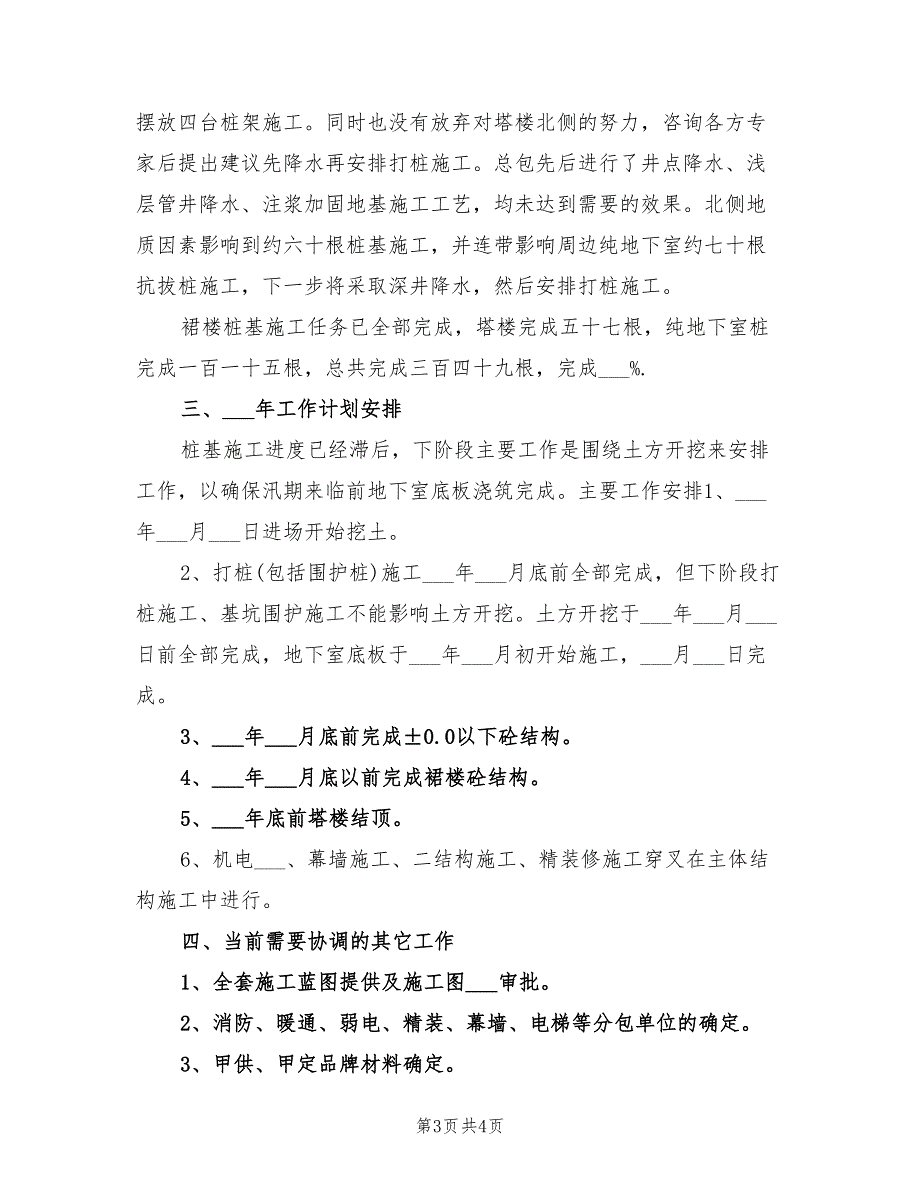 摆放四台桩架施工。同时也没有放弃对塔楼北侧的努力，咨询各方专
家后提出建议先降水再安排打桩施工。总包先后进行了井点降水、浅
层管井降水、注浆加固地基施工工艺，均未达到需要的效果。北侧地
质因素影响到约六十根桩基施工，并连带影响周边纯地下室约七十根
抗拔桩施工，下一步将采取深井降水，然后安排打桩施工。
裙楼桩基施工任务已全部完成，塔楼完成五十七根，纯地下室桩
完成一百一十五根，总共完成三百四十九根，完成___%.
三、___年工作计划安排
桩基施工进度已经滞后，下阶段主要工作是围绕土方开挖来安排
工作，以确保汛期来临前地下室底板浇筑完成。主要工作安排1、___
年___月___日进场开始挖土。
2、打桩(包括围护桩)施工___年___月底前全部完成，但下阶段打
桩施工、基坑围护施工不能影响土方开挖。土方开挖于___年___月___
日前全部完成，地下室底板于___年___月初开始施工，___月___日完
成。
3、___年___月底前完成±0.0以下砼结构。
4、___年___月底以前完成裙楼砼结构。
5、___年底前塔楼结顶。
6、机电___、幕墙施工、二结构施工、精装修施工穿叉在主体结
构施工中进行。
四、当前需要协调的其它工作
1、全套施工蓝图提供及施工图___审批。
2、消防、暖通、弱电、精装、幕墙、电梯等分包单位的确定。
3、甲供、甲定品牌材料确定。
第3页共4页